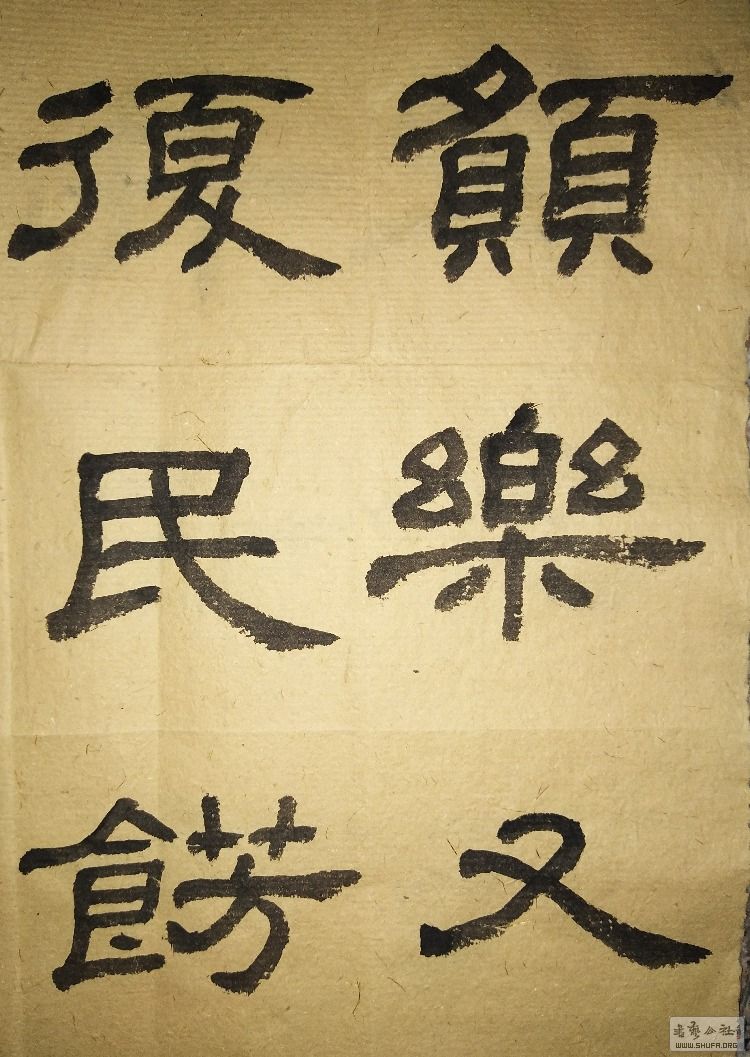 願樂又
復民餝
书艺公社
WWW.SHUFA.ORG